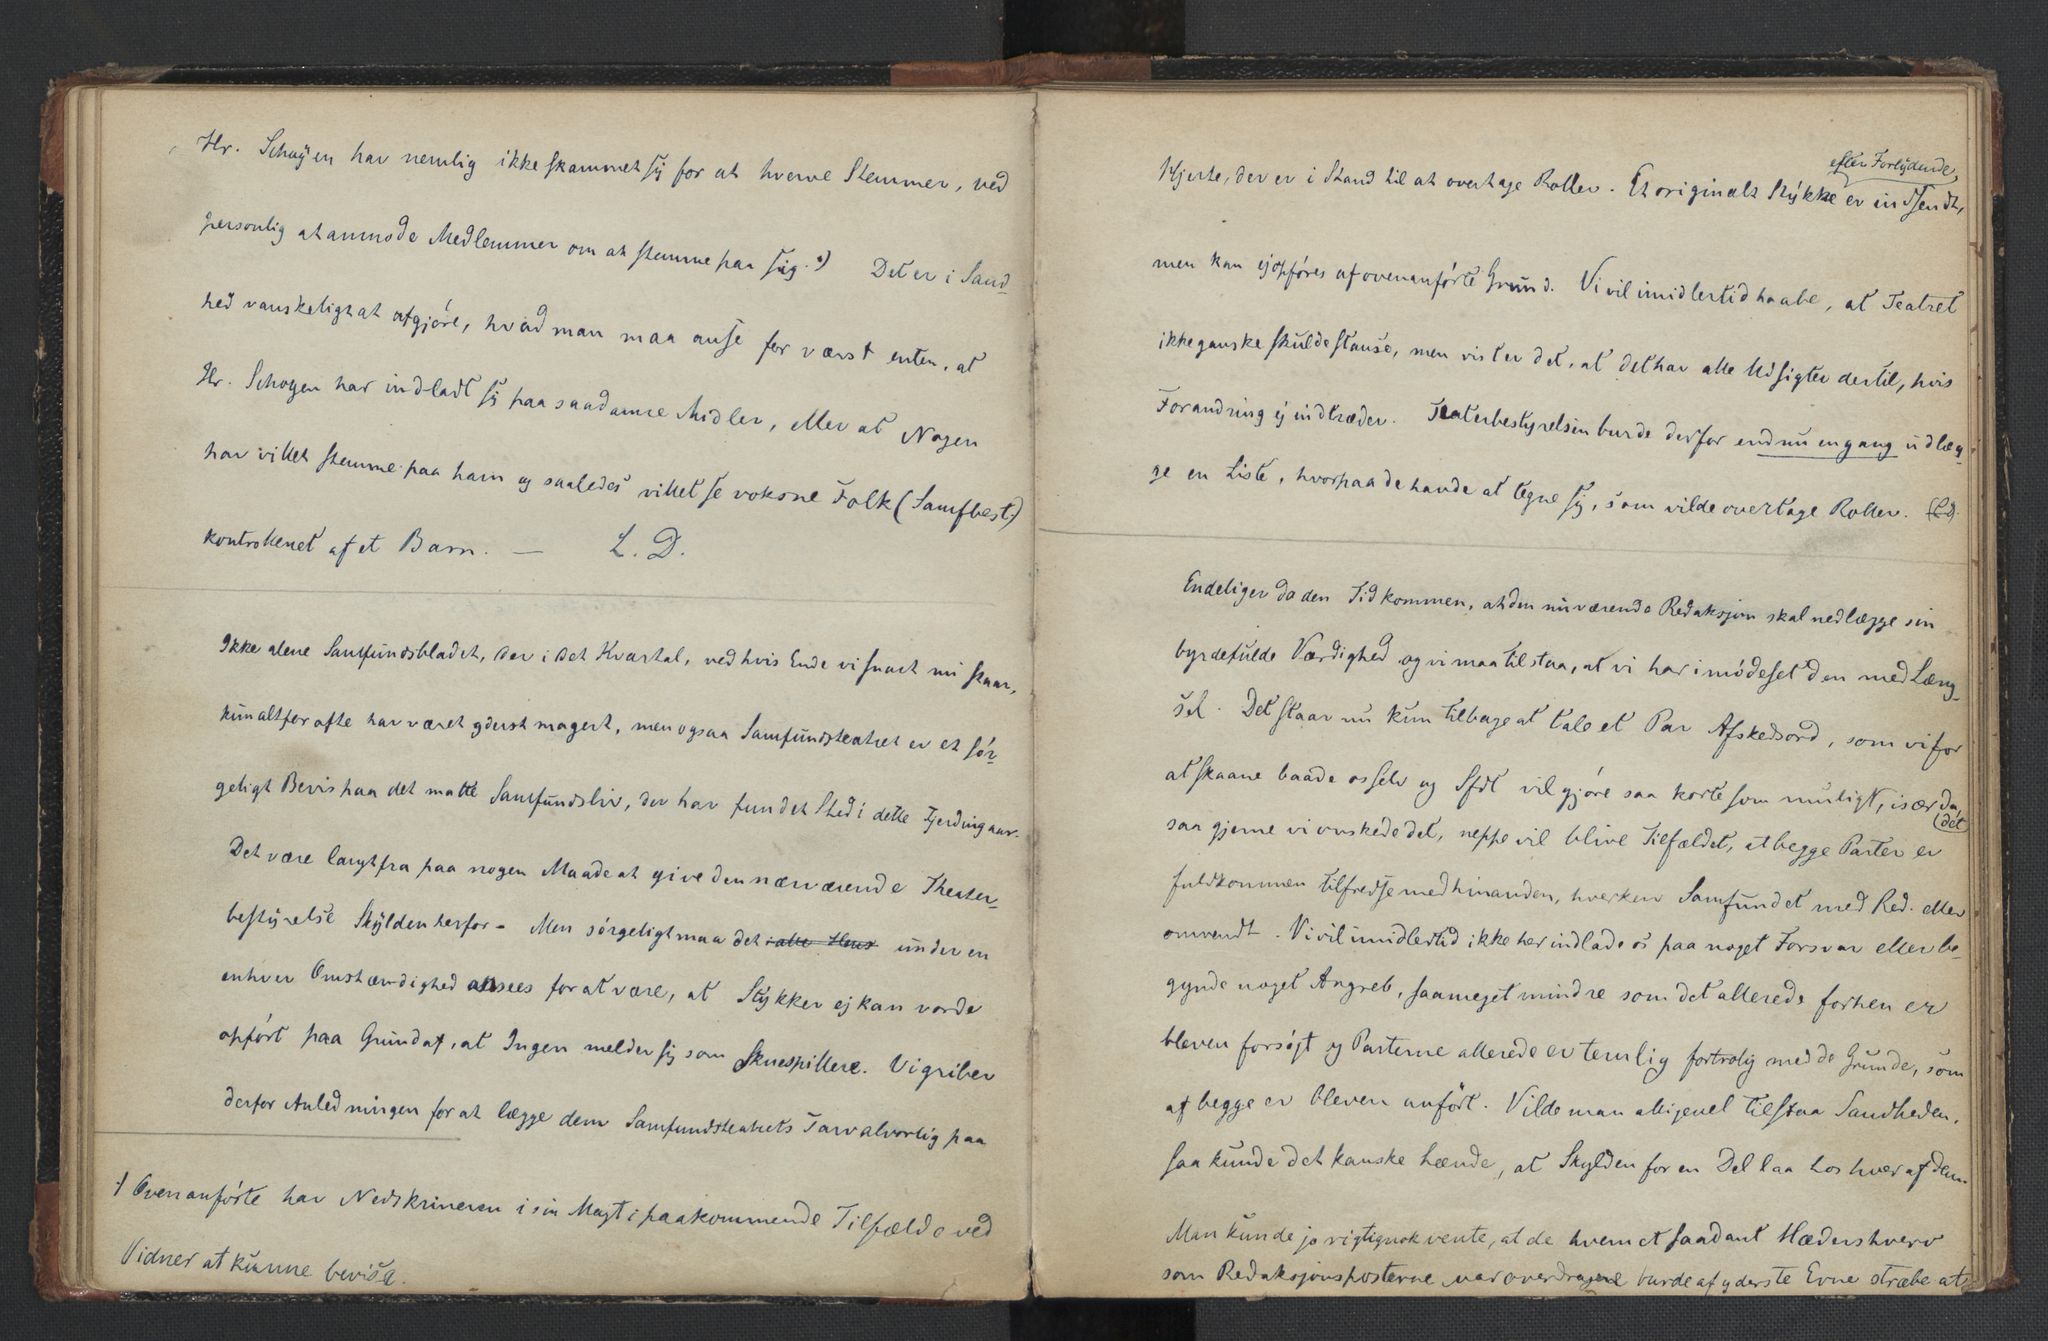 Hr. Schøyen har nemlig ikke skammet sig for at hverve Stemmer, ved
personlig at anmode Medlemmer om at stemme paa sig. *) Det er i Sand-
hed vanskeligt at afgjóre, hvad man maa anse for værst enten, at
Hr. Schøyen har indladt sig paa saadanne Midler, eller at Nogen
har villet stemme paa ham og saaledes villet se voksne Folk (Samfbest.)
kontrolleret af et Barn. — L. D.
Ikke alene Samfundsbladet, der i det Kvartal, ved hvis Ende vi snart nu staar,
kun altfor ofte har været yderst magert, men ogsaa Samfundsteatret er et sór-
geligt Bevis paa det matte Samfundsliv, der har fundet Sted i dette Fjerdingaar.
Det være langt fra paa nogen Maade at give den nærværende Theater-
bestyrelse Skylden herfor. Men sórgeligt maa det i alle Hens under en
enhver Omstændighed ansees for at være, at Stykker ej kan vorde
opfórt paa Grund af, at Ingen melder sig som Skuespillere. Vi griber
derfor Anledningen for at lægge dem Samfundsteatrets Tarv alvorlig paa
*) Ovenanfórte har Nedskriveren i sin Magt i paakommende Tilfælde ved
Vidner at kunne bevise.
efter Forlydende,
Hjerte, der er i Stand til at overtage Roller. Et originalt Stykke er indsendt,
men kan ej opfóres af ovenanfórte Grund. Vi vil imidlertid haabe, at Teatret
ikke ganske skulde stanse, men vist er det, at det har alle Udsigter dertil, hvis
Forandring ej indtræder. Teaterbestyrelsen burde derfor endnu engang udlæg-
ge en Liste, hvorpaa de havde at tegne sig, som vilde overtage Roller.
Endelig er da den Tid kommen, at den nuværende Redaksjon skal nedlægge sin
byrdefulde Værdighed og vi maa tilstaa, at vi har imódeset den med Læng-
sel. Det staar nu kun tilbage at tale et Par Afskedsord, som vi for
at skaane baade os selv og Sfdt vil gjóre saa korte som muligt, især da,
saa gjerne vi ónskede det, neppe vil blive Tilfældet, at begge Parter er (det)
fuldkommen tilfredse med hinanden, hverken Samfundet med Red. eller
omvendt. Vi vil imidlertid ikke her indlade os paa noget Forsvar eller be-
gynde noget Angreb, saameget mindre som det allerede forhen er
bleven forsøgt og Parterne allerede er temlig fortrolig med de Grunde, som
af begge er bleven anfórt. Vilde man alligevel tilstaa Sandheden,
saa kunde det kanske hænde, at Skylden for en Del laa hos hver af dem
Man kunde jo rigtignok vente, at de hvem et saadant Hædershverv
som Redaksjonsposterne var overdragne burde af yderste Evne stræbe at